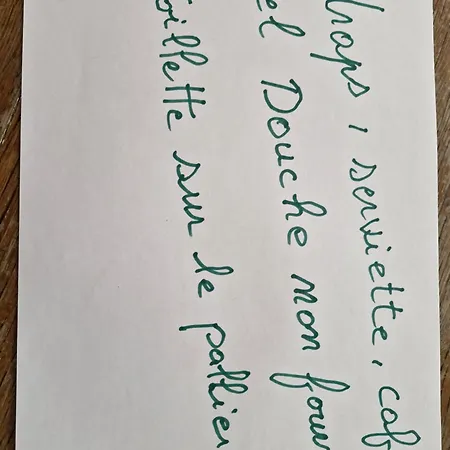 draps, serviette, caf
gel Douche mon four
toillette sur le pallier